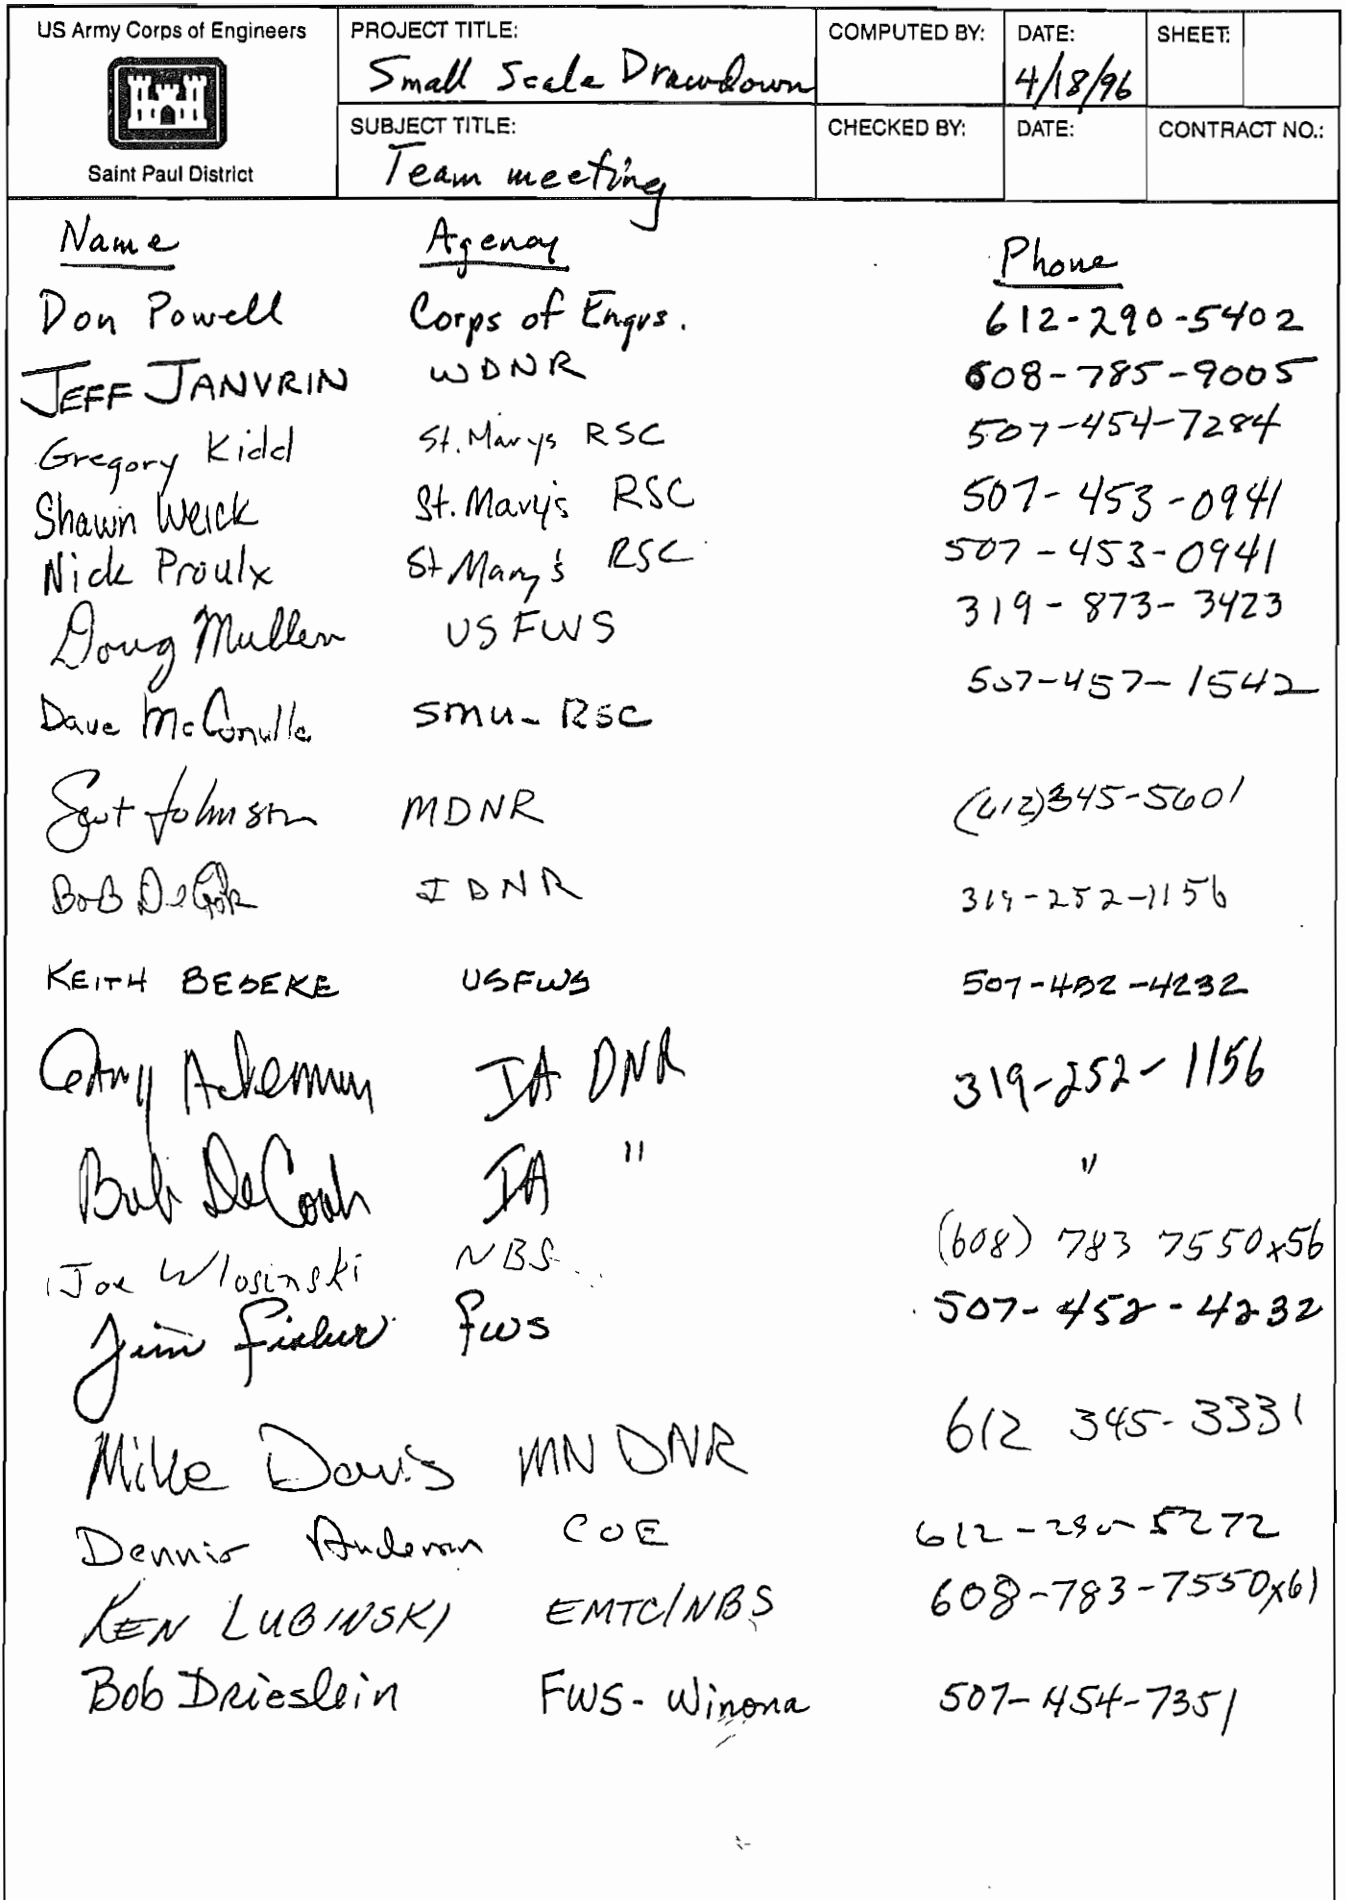 US Army Corps of Engineers
Saint Paul District
PROJECT TITLE:
Small Scale Drawdown
COMPUTED BY:
DATE:
4/18/96
SHEET:
SUBJECT TITLE:
Team meeting
CHECKED BY:
DATE:
CONTRACT NO.:
Name Agency Phone
Don Powell Corps of Engrs. 612-290-5402
JEFF JANVRIN WDNR 608-785-9005
Gregory Kidd St. Marys RSC 507-454-7284
Shawn Weick St. Mary's RSC 507-453-0941
Nick Proulx St Mary's RSC 507-453-0941
Doug Mullen USFWS 319-873-3423
Dave McConville SMU-RSC 507-457-1542
Scot Johnson MDNR (612)345-5601
Bob IDNR 319-252-1156
KEITH BESEKE USFWS 507-452-4232
Gary Ackerman IA DNR 319-252-1156
Bob IA " "
Joe Wlosinski NBS (608) 783 7550x56
Jim Fisher FWS 507-452-4232
Mike Davis MN DNR 612 345-3331
Dennis Anderson COE 612-290-5272
KEN LUBINSKI EMTC/NBS 608-783-7550x61
Bob Drieslein FWS-Winona 507-454-7351